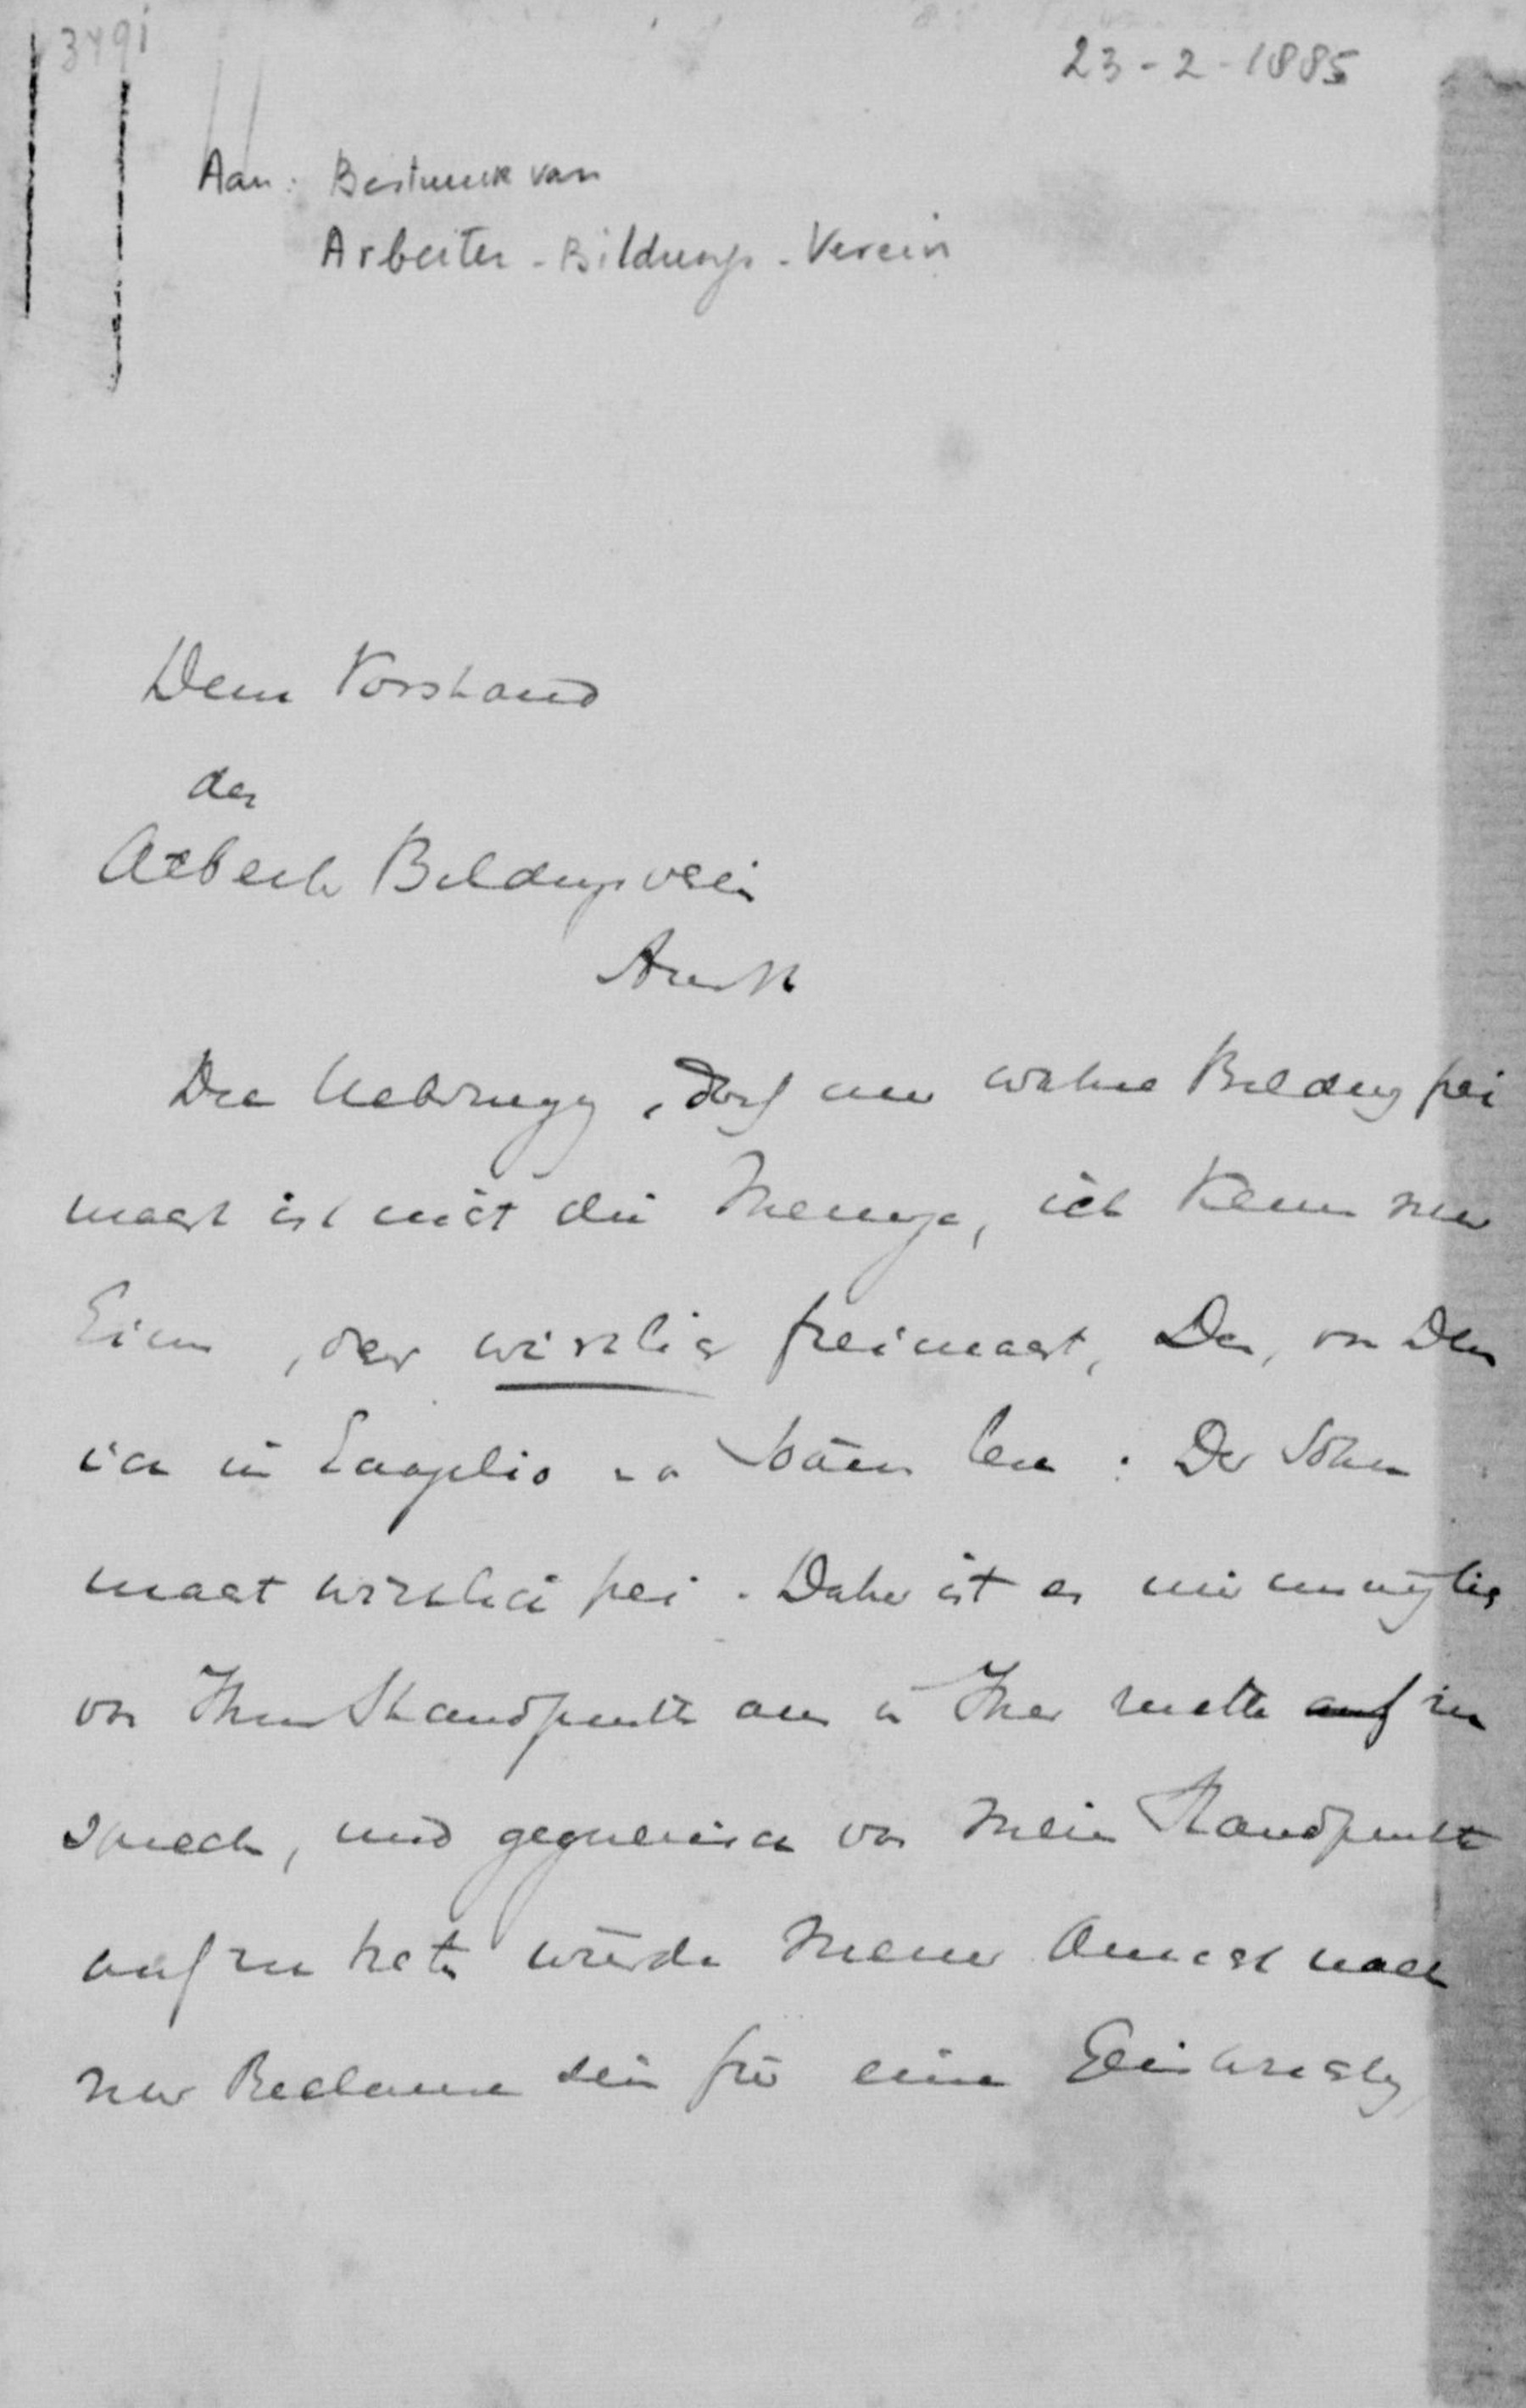 3491
23-2-1885
Aan: Bestuur van
Arbeiter-Bildungs-Verein
Dem Vorstand
des
Arbeiter Bildungsverein
Die Ueberzeugung, dass nur wahre Bildung frei
macht ist nicht die Meinige, ich kenne nur
Einen, der wirklich frei macht, Der, von Dem
ich im Evangelio lese: Der Sohn
macht wirklich frei. Daher ist es mir unmöglich
von Ihrem Standpunkte aus in Ihrer Mitte auf zu
sprechen, und gegenueber von Mein Standpunkte
aufzutreten würde Meiner Ansicht nach
nur Reclame sein für eine Einrichtung,